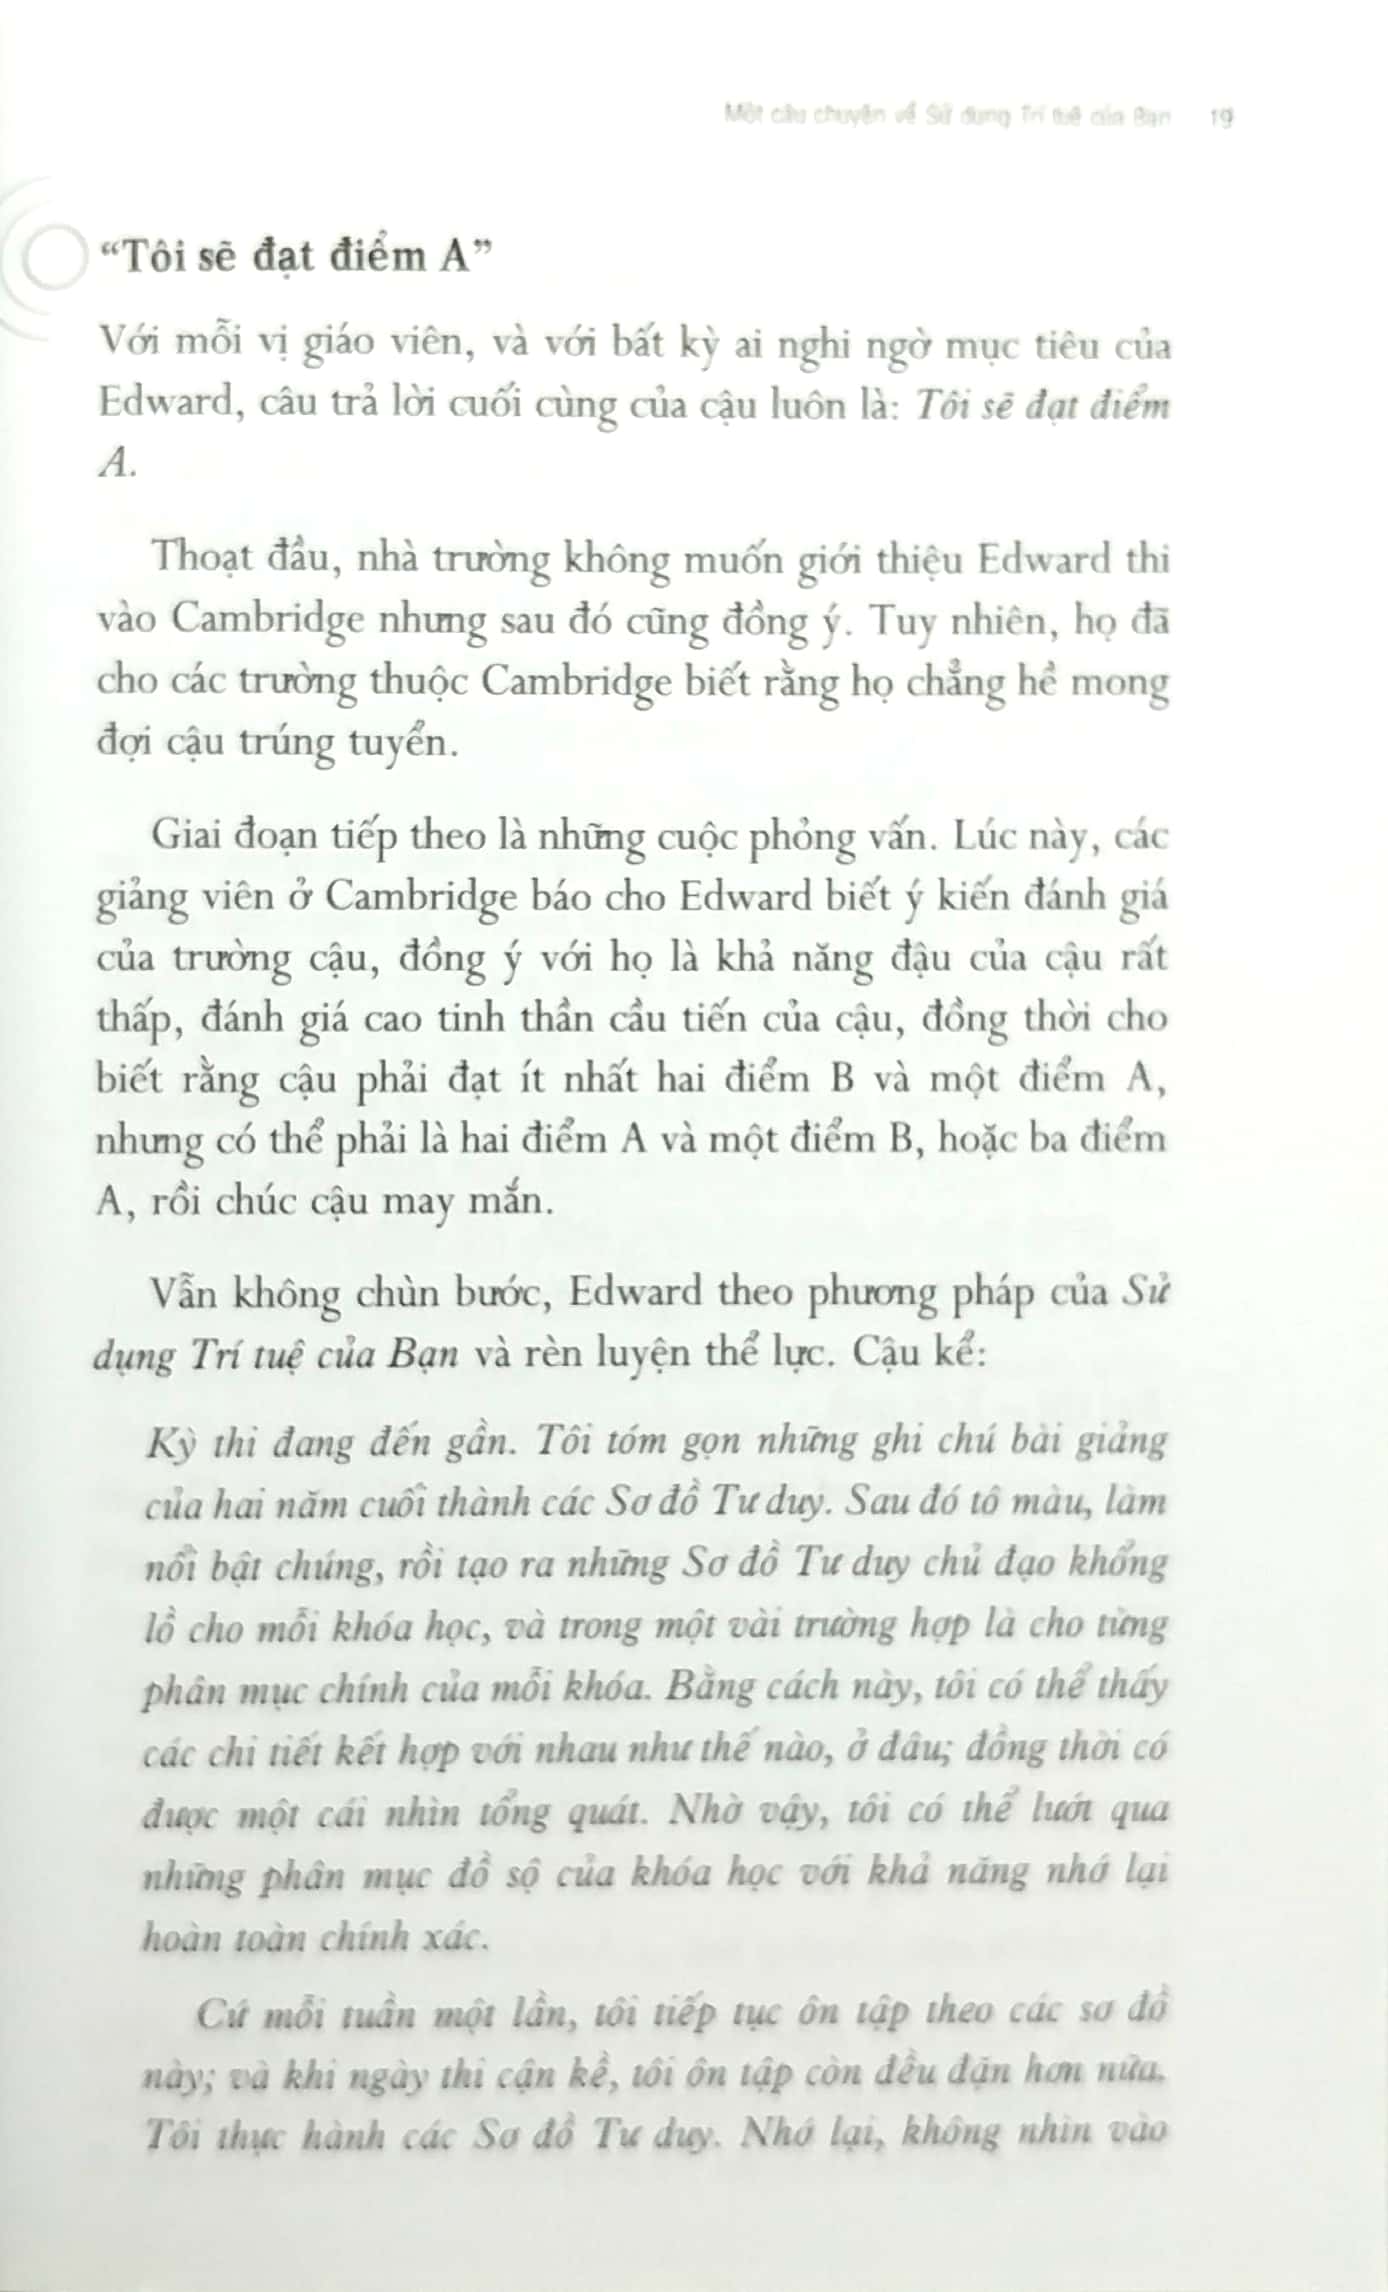 Một câu chuyện về Sử dụng Trí tuệ của Bạn 19
“Tôi sẽ đạt điểm A”
Với mỗi vị giáo viên, và với bất kỳ ai nghi ngờ mục tiêu của
Edward, câu trả lời cuối cùng của cậu luôn là: Tôi sẽ đạt điểm
A.
Thoạt đầu, nhà trường không muốn giới thiệu Edward thi
vào Cambridge nhưng sau đó cũng đồng ý. Tuy nhiên, họ đã
cho các trường thuộc Cambridge biết rằng họ chẳng hề mong
đợi cậu trúng tuyển.
Giai đoạn tiếp theo là những cuộc phỏng vấn. Lúc này, các
giảng viên ở Cambridge báo cho Edward biết ý kiến đánh giá
của trường cậu, đồng ý với họ là khả năng đậu của cậu rất
thấp, đánh giá cao tinh thần cầu tiến của cậu, đồng thời cho
biết rằng cậu phải đạt ít nhất hai điểm B và một điểm A,
nhưng có thể phải là hai điểm A và một điểm B, hoặc ba điểm
A, rồi chúc cậu may mắn.
Vẫn không chùn bước, Edward theo phương pháp của Sử
dụng Trí tuệ của Bạn và rèn luyện thể lực. Cậu kể:
Kỳ thi đang đến gần. Tôi tóm gọn những ghi chú bài giảng
của hai năm cuối thành các Sơ đồ Tư duy. Sau đó tô màu, làm
nổi bật chúng, rồi tạo ra những Sơ đồ Tư duy chủ đạo khổng
lồ cho mỗi khóa học, và trong một vài trường hợp là cho từng
phân mục chính của mỗi khóa. Bằng cách này, tôi có thể thấy
các chi tiết kết hợp với nhau như thế nào, ở đâu; đồng thời có
được một cái nhìn tổng quát. Nhờ vậy, tôi có thể lướt qua
những phân mục đồ sộ của khóa học với khả năng nhớ lại
hoàn toàn chính xác.
Cứ mỗi tuần một lần, tôi tiếp tục ôn tập theo các sơ đồ
này; và khi ngày thi cận kề, tôi ôn tập còn đều đặn hơn nữa.
Tôi thực hành các Sơ đồ Tư duy. Nhớ lại, không nhìn vào